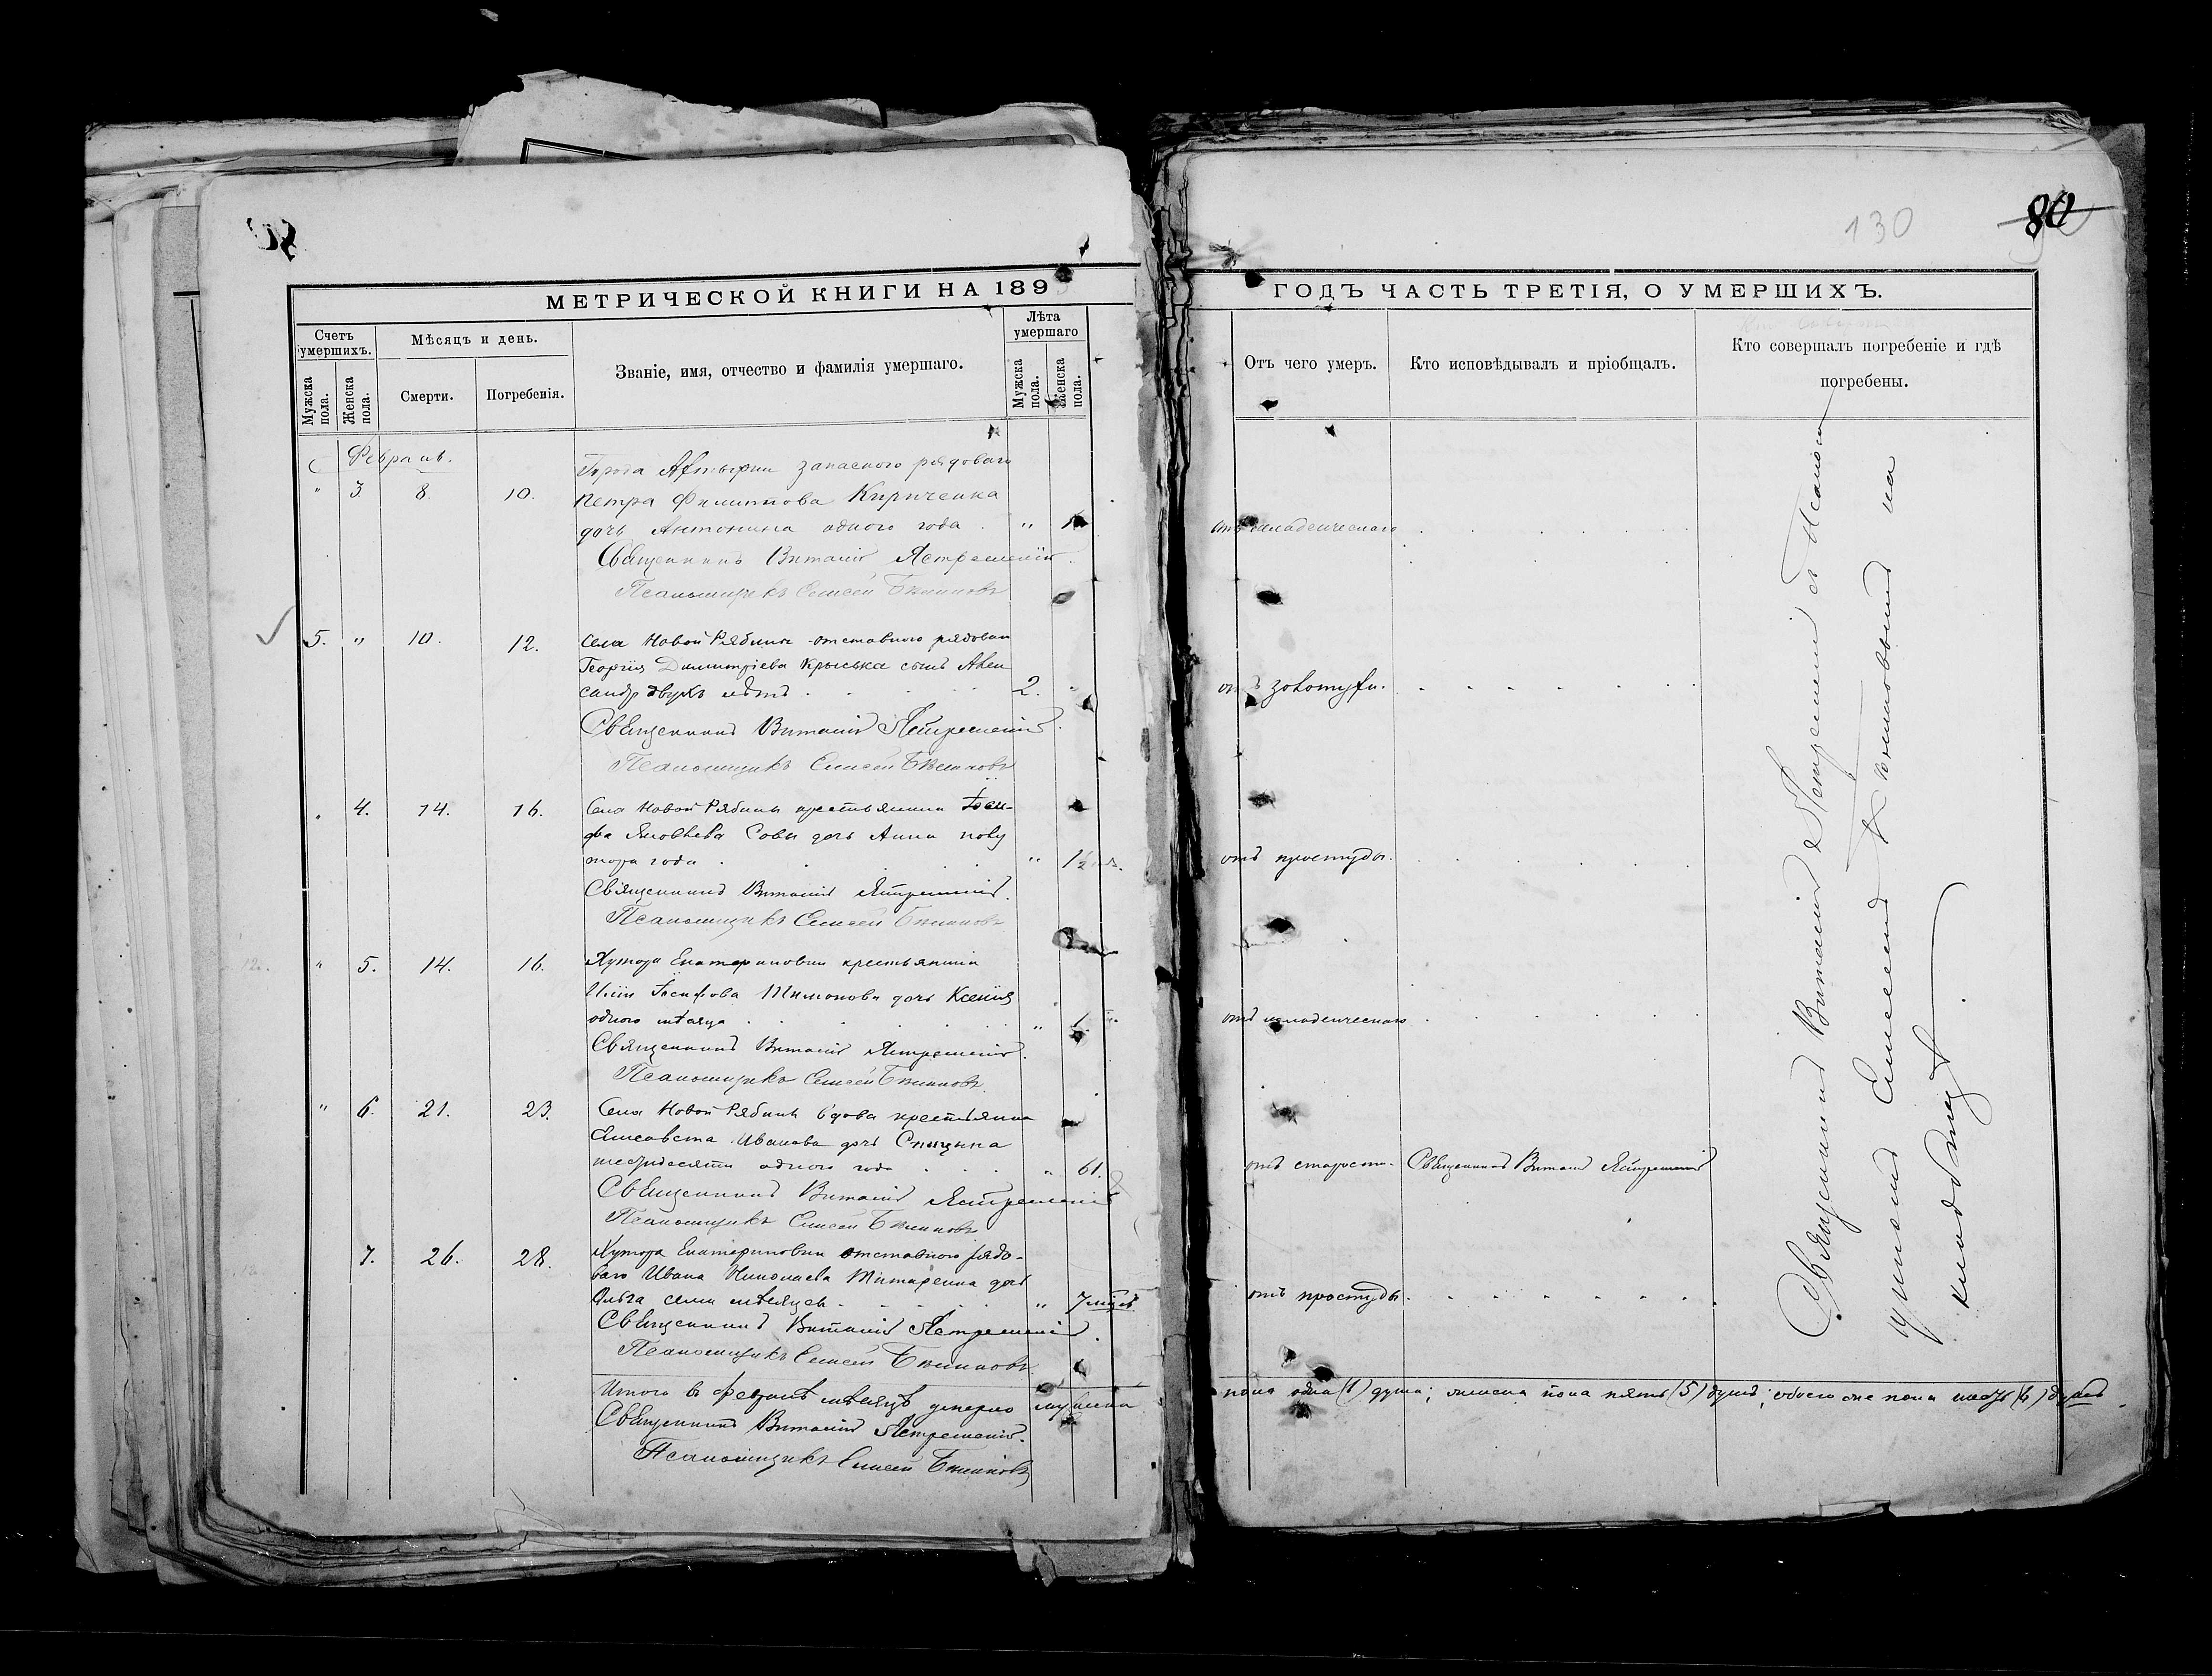 80
130
МЕТРИЧЕСКОЙ КНИГИ НА 189
ГОДЪ ЧАСТЬ ТРЕТІЯ, О УМЕРШИХЪ.
Счетъ умершихъ.
Мужска пола.
Женска пола.
Мѣсяцъ и день.
Смерти.
Погребенія.
Званіе, имя, отчество и фамилія умершаго.
Лѣта умершаго
Мужска пола.
Женска пола.
Отъ чего умеръ.
Кто исповѣдывалъ и пріобщалъ.
Кто совершалъ погребеніе и гдѣ
погребены.
Февраль.
Города Ахтырки запаснаго рядоваго
" 3. 8. 10. Петра Филиппова Кириченка
дочь Антонина одного года . " отъ младенческаго
Священникъ Виталій
Псаломщикъ Елисей
5. " 10. 12. Села Новой Рябины отставного рядоваго
Георгія Димитріева Крыська сынъ Алек
сандр двухъ лѣтъ 2. " отъ золотухи.
Священникъ Виталій
Псаломщикъ Елисей
" 4. 14. 16. Села Новой Рябины крестьянина Іоси-
фа Яковлева Совы дочь Анна полу
тора года . " 1½ отъ простуды.
Священникъ Виталій
Псаломщикъ Елисей
" 5. 14. 16. Хутора Екатериновки крестьянина
Іосифова дочь Ксенія
одного мѣсяца . " 1 отъ младенческаго
Священникъ Виталій
Псаломщикъ Елисей
" 6. 21. 23. Села Новой Рябины вдова крестьянка
Елисавета Иванова дочь
шестидесяти одного года . " 61. отъ старости. Священникъ Виталій
Священникъ Виталій
Псаломщикъ Елисей
7. 26. 28. Хутора Екатериновки отставного рядо-
ваго Ивана Николаева Титаренка дочь
Ольга семи мѣсяцев . " 7 мѣс. отъ простуды.
Священникъ Виталій
Псаломщикъ Елисей
Итого въ февралѣ мѣсяцѣ умерло мужеска пола одна (1) душа; женска пола пять (5) душъ; обоего же пола шесть (6) душъ
Священникъ Виталій
Псаломщикъ Елисей
Священникъ Виталій съ Псалом
щикомъ Елисеемъ на
кладбищѣ